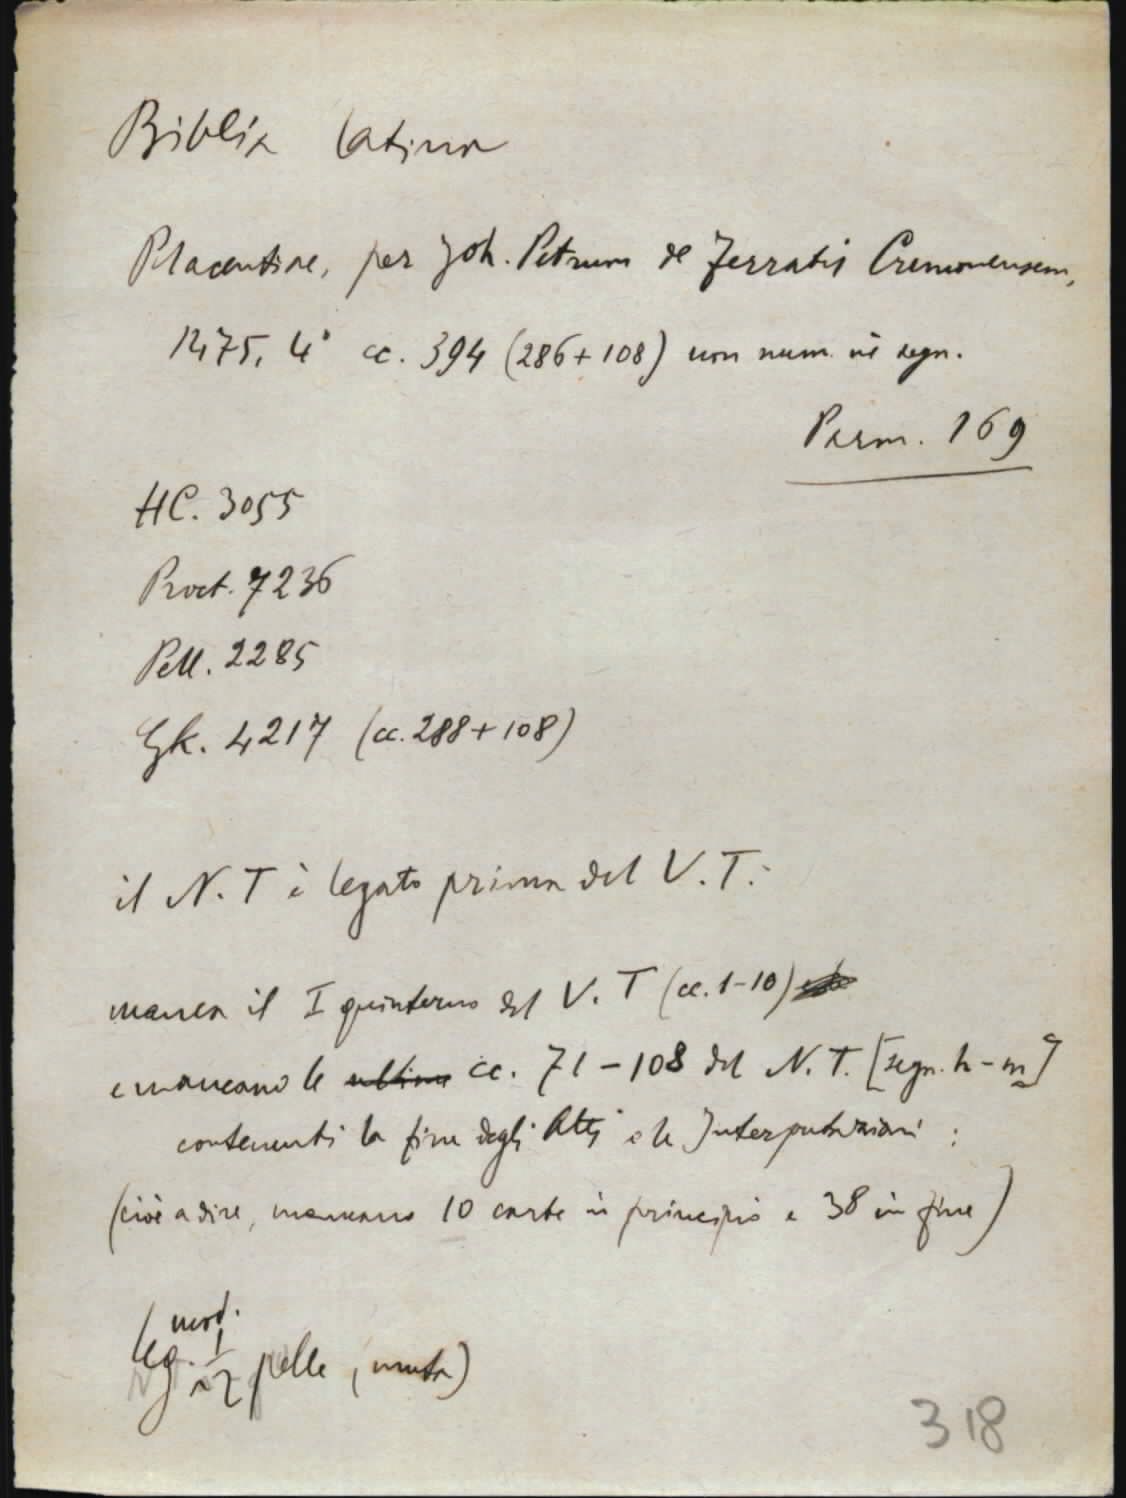 Biblia latina
Placentiae, per Joh. Petrum de Ferratis Cremonensem,
1475, 4° cc. 394 (286+108) non num. nè segn.
Parm. 169
HC. 3055
Proct. 7236
Pell. 2285
Gk. 4217 (cc. 288+108)
il N. T è legato prima del V. T.:
manca il I quinterno del V. T (cc. 1-10)
e mancano le ultime cc. 71-108 del N. T. [segn. h-m]
contenenti la fine degli Atti e le Interpretazioni :
(cioè a dire, mancano 10 carte in principio e 38 in fine)
mod.
leg. 1/2 pelle, (muta)
318